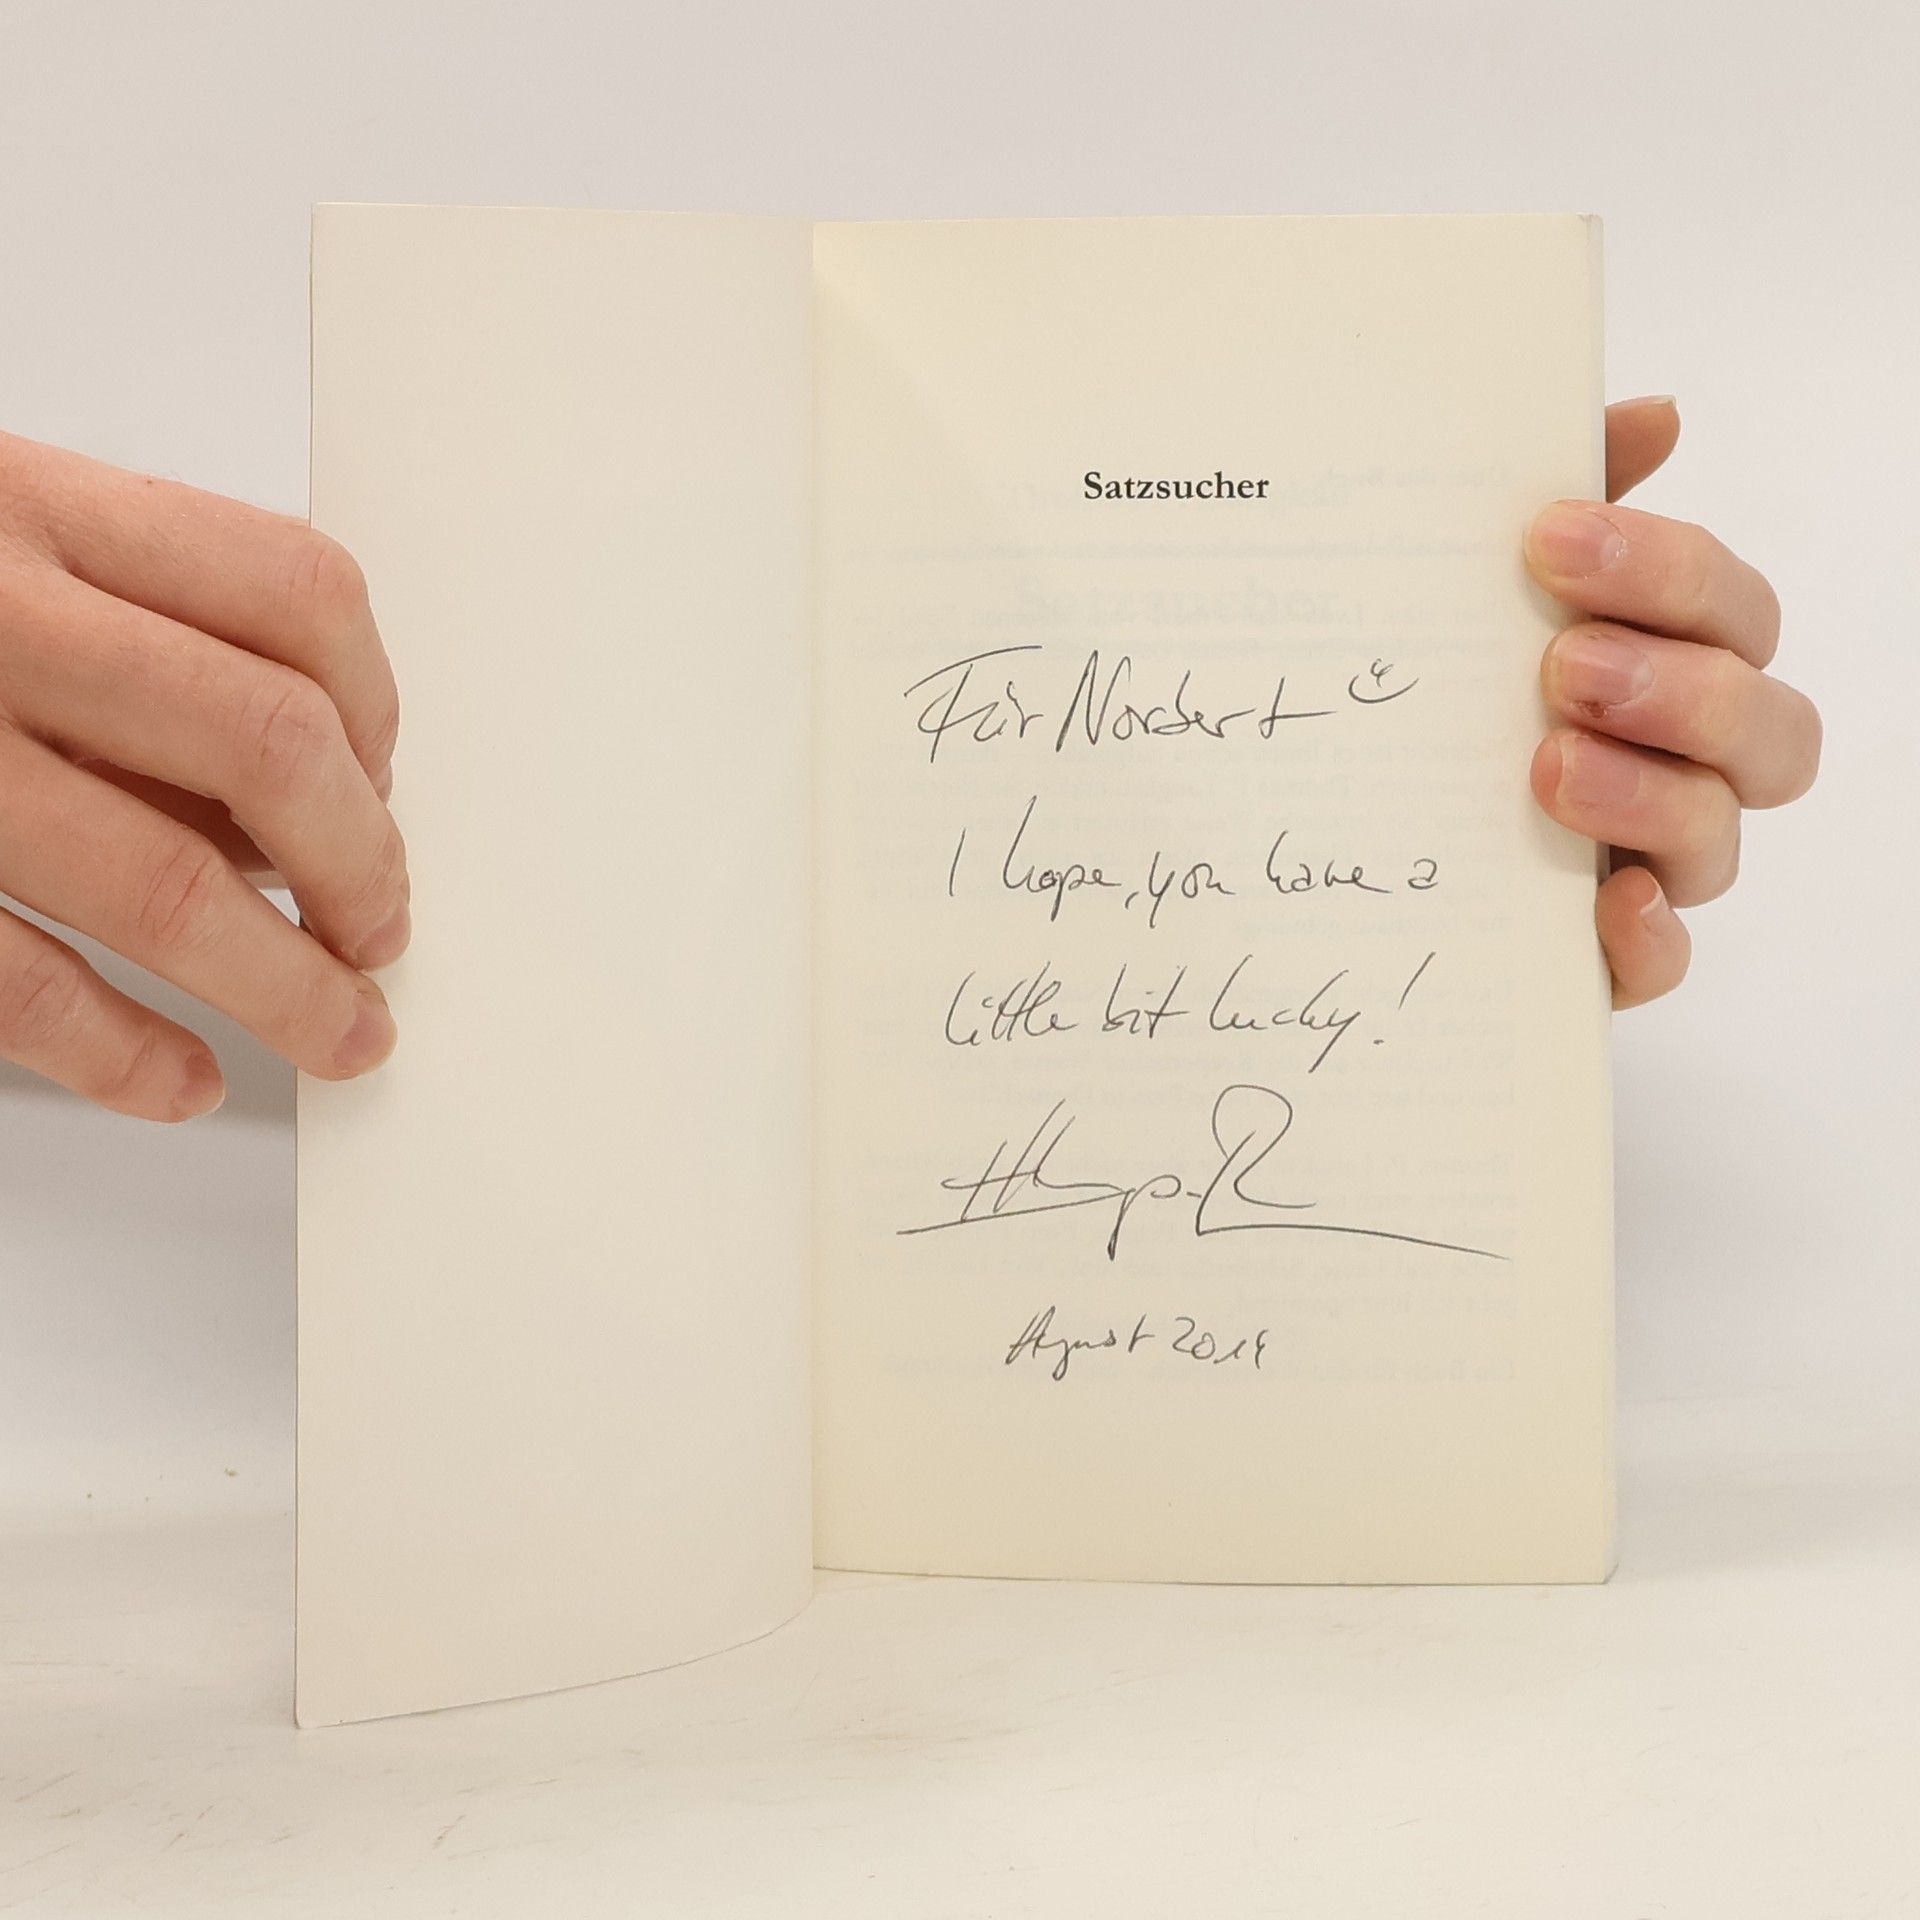 Satzsucher
Für Norbert
I hope, you have a
little bit lucky!
August 2014